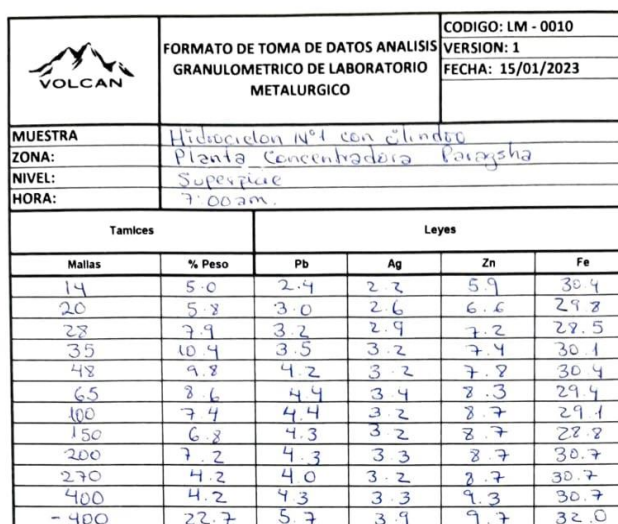 VOLCAN
FORMATO DE TOMA DE DATOS ANALISIS
GRANULOMETRICO DE LABORATORIO
METALURGICO
CODIGO: LM - 0010
VERSION: 1
FECHA: 15/01/2023
MUESTRA Hidrociclon N°1 con cilindro
ZONA: Planta Concentradora Paragsha
NIVEL: Superficie
HORA: 7:00am.
Tamices Leyes
Mallas % Peso Pb Ag Zn Fe
14 5.0 2.4 2.2 5.9 30.4
20 5.8 3.0 2.6 6.6 29.8
28 7.9 3.2 2.9 7.2 28.5
35 10.4 3.5 3.2 7.4 30.1
48 9.8 4.2 3.2 7.8 30.4
65 8.6 4.4 3.4 8.3 29.4
100 7.4 4.4 3.2 8.7 29.1
150 6.8 4.3 3.2 8.7 28.8
200 7.2 4.3 3.3 8.7 30.7
270 4.2 4.0 3.2 8.7 30.7
400 4.2 4.3 3.3 9.3 30.7
-400 22.7 5.7 3.9 9.7 32.0